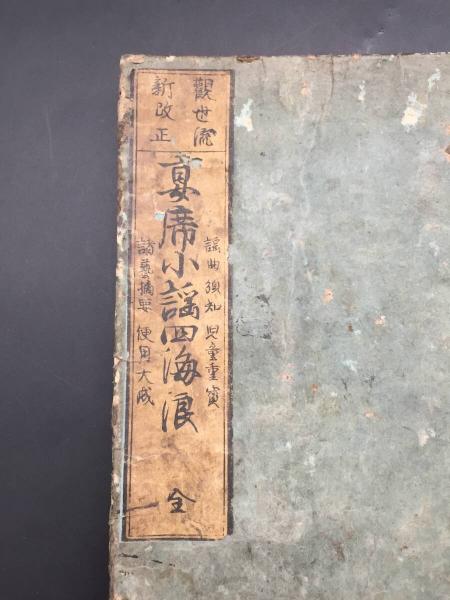 觀世流
新改正
宴席小謡四海浪 全
謡曲須知 児童重寳
諸藝摘要 使用大成